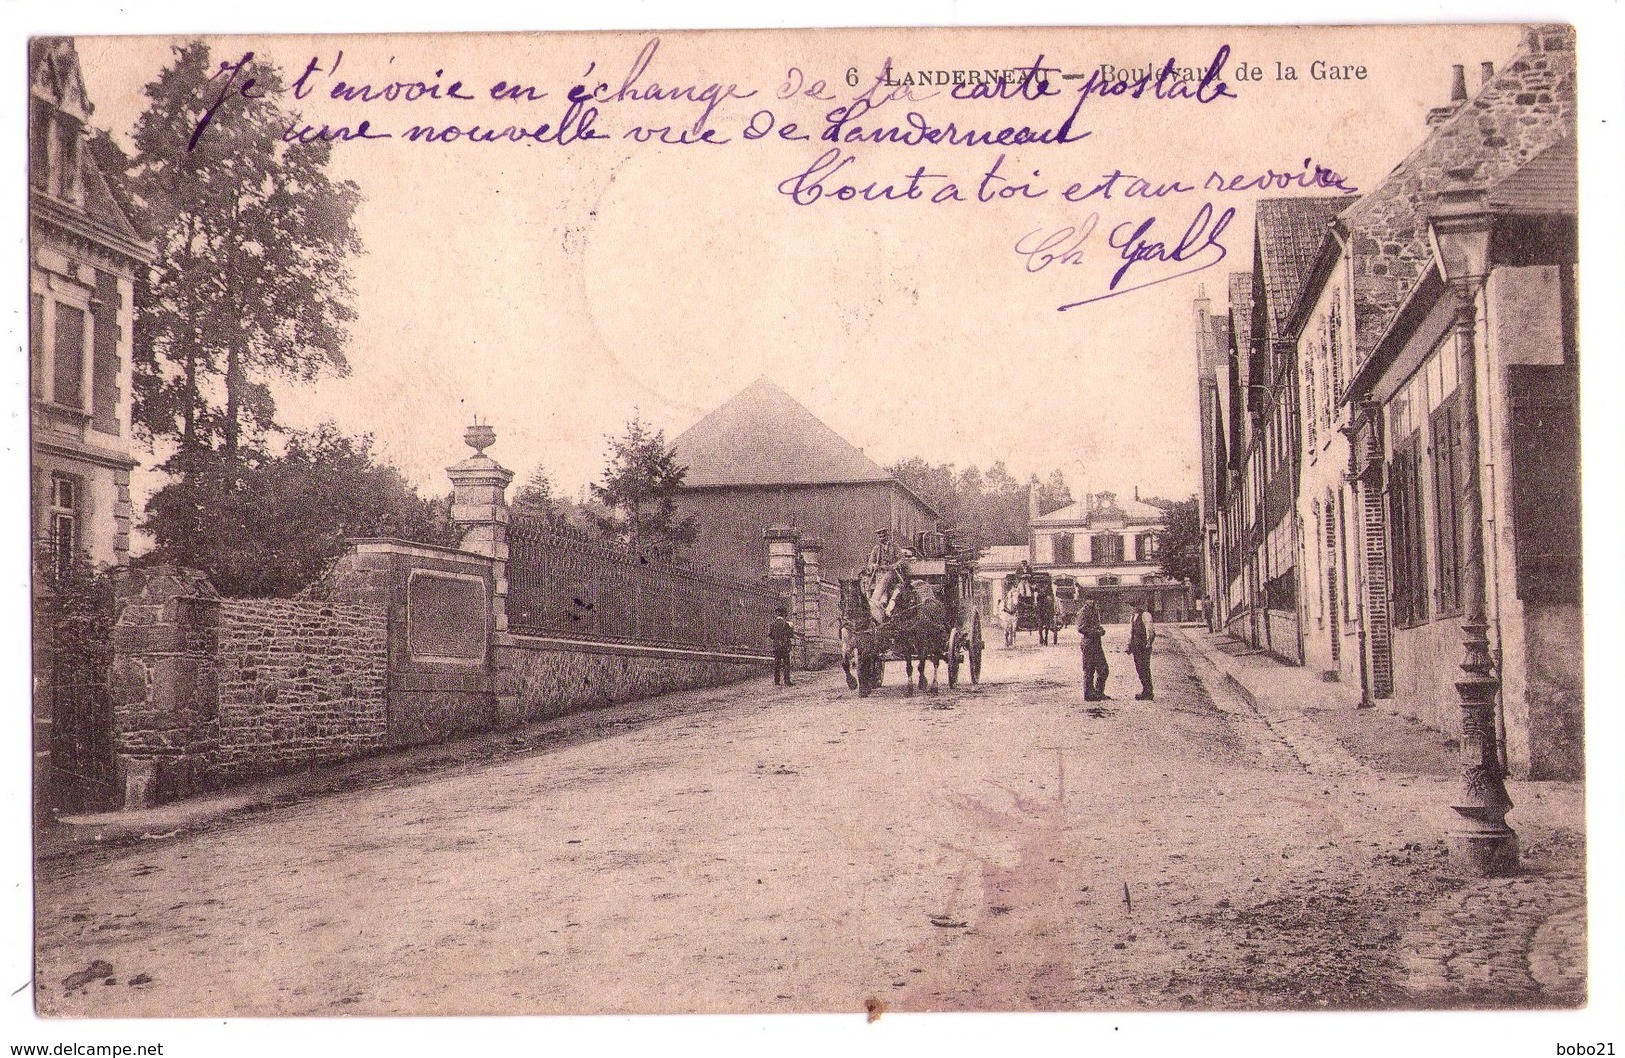 6 LANDERNEAU — Boulevard de la Gare
Je t'envoie en échange de ta carte postale
une nouvelle vue de Landerneau
Tout a toi et au revoir
Ch Gall
delcampe.net
bobo21